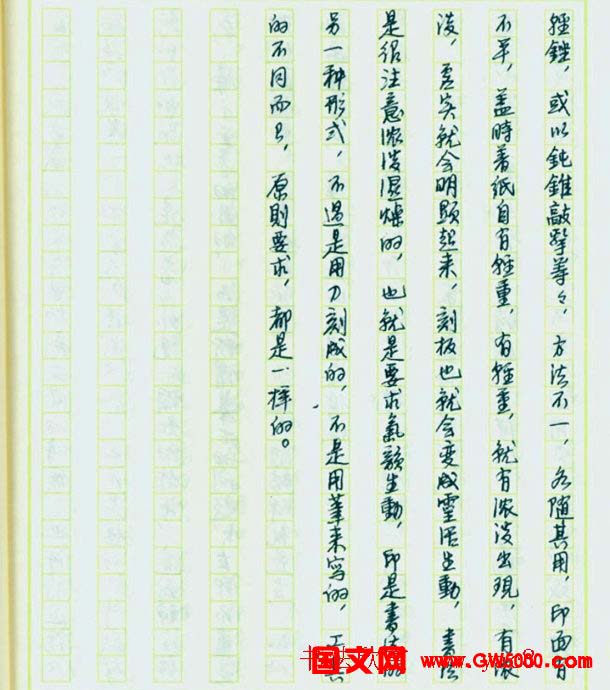 輕銼，或以鈍錐敲擊等々，方法不一，各隨其用，印面有
不平，蓋時著紙自有輕重，有輕重，就有濃淡出現，有濃
淡，虛实就会明顯起来，刻板也就会变成靈活生動，書法
是很注意浓淡湿燥的，也就是要求氣韻生動，印是書法的
另一种形式，不過是用刀刻成的，不是用筆来寫的，工具
的不同而已，原則要求，都是一样的。
国文网
www.GW5000.com